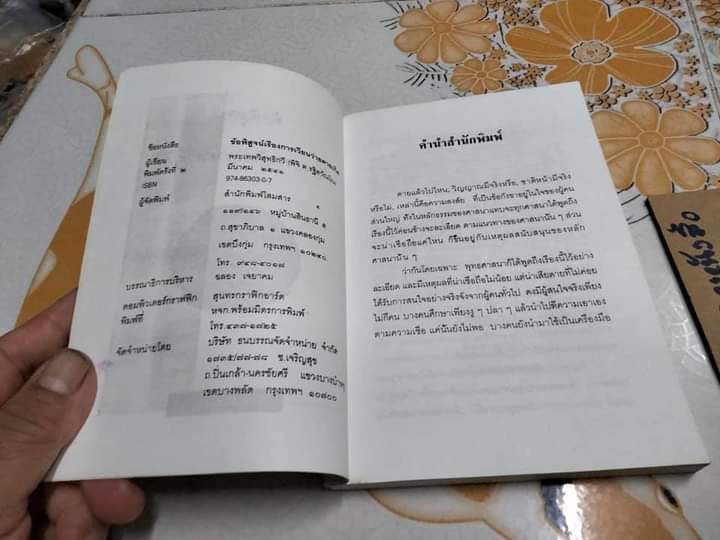 ชื่อหนังสือ ข้อพิสูจน์เรื่องการเวียนว่ายตายเกิด
ผู้เขียน พระเทพวิสุทธิกวี (พิจิตร ฐิตวณฺโณ)
พิมพ์ครั้งที่ ๒ มีนาคม ๒๕๔๑
ISBN 974-86303-0-7
ผู้จัดพิมพ์ สำนักพิมพ์โสมสาร
หมู่บ้านสินธานี ๑
ถ.สุขาภิบาล ๑ แขวงคลองกุ่ม
เขตบึงกุ่ม กรุงเทพฯ ๑๐๒๔๐.
โทร. ๙๔๘-๔๐๑๘
บรรณาธิการบริหาร ฉลอง เจยาคม
คอมพิวเตอร์กราฟฟิก สุนทรกราฟิกอาร์ต
พิมพ์ที่ หจก.พร้อมมิตรการพิมพ์
โทร.๔๓๗-๑๘๒๕
จัดจำหน่ายโดย บริษัท ธนบรรณจัดจำหน่าย จำกัด
๑๘๓๕/๗๗-๗๘ ซ.เจริญสุข
ถ.ปิ่นเกล้า-นครชัยศรี แขวงบางบำหรุ
เขตบางพลัด กรุงเทพฯ ๑๐๗๐๐
คำนำสำนักพิมพ์
ตายแล้วไปไหน, วิญญาณมีจริงหรือ, ชาติหน้ามีจริง
หรือไม่, เหล่านี้คือความสงสัย ที่เป็นข้อกังขาอยู่ในใจของผู้คน
ส่วนใหญ่ ดังในหลักธรรมของศาสนาแทบจะทุกศาสนาได้พูดถึง
เรื่องนี้ไว้ค่อนข้างจะละเอียด ตามแนวทางของศาสนานั้น ๆ ส่วน
จะน่าเชื่อถือแค่ไหน ก็ขึ้นอยู่กับเหตุผลสนับสนุนของหลัก
ศาสนานั้น ๆ
ว่ากันโดยเฉพาะ พุทธศาสนาก็ได้พูดถึงเรื่องนี้ไว้อย่าง
ละเอียด และมีเหตุผลที่น่าเชื่อถือไม่น้อย แต่น่าเสียดายที่ไม่ค่อย
ได้รับการสนใจอย่างจริงจังจากผู้คนทั่วไป คงมีผู้สนใจจริงเพียง
ไม่กี่คน บางคนศึกษาเพียงงู ๆ ปลา ๆ แล้วนำไปตีความเอาเอง
ตามความเชื่อ แค่นั้นยังไม่พอ บางคนยังนำมาใช้เป็นเครื่องมือ